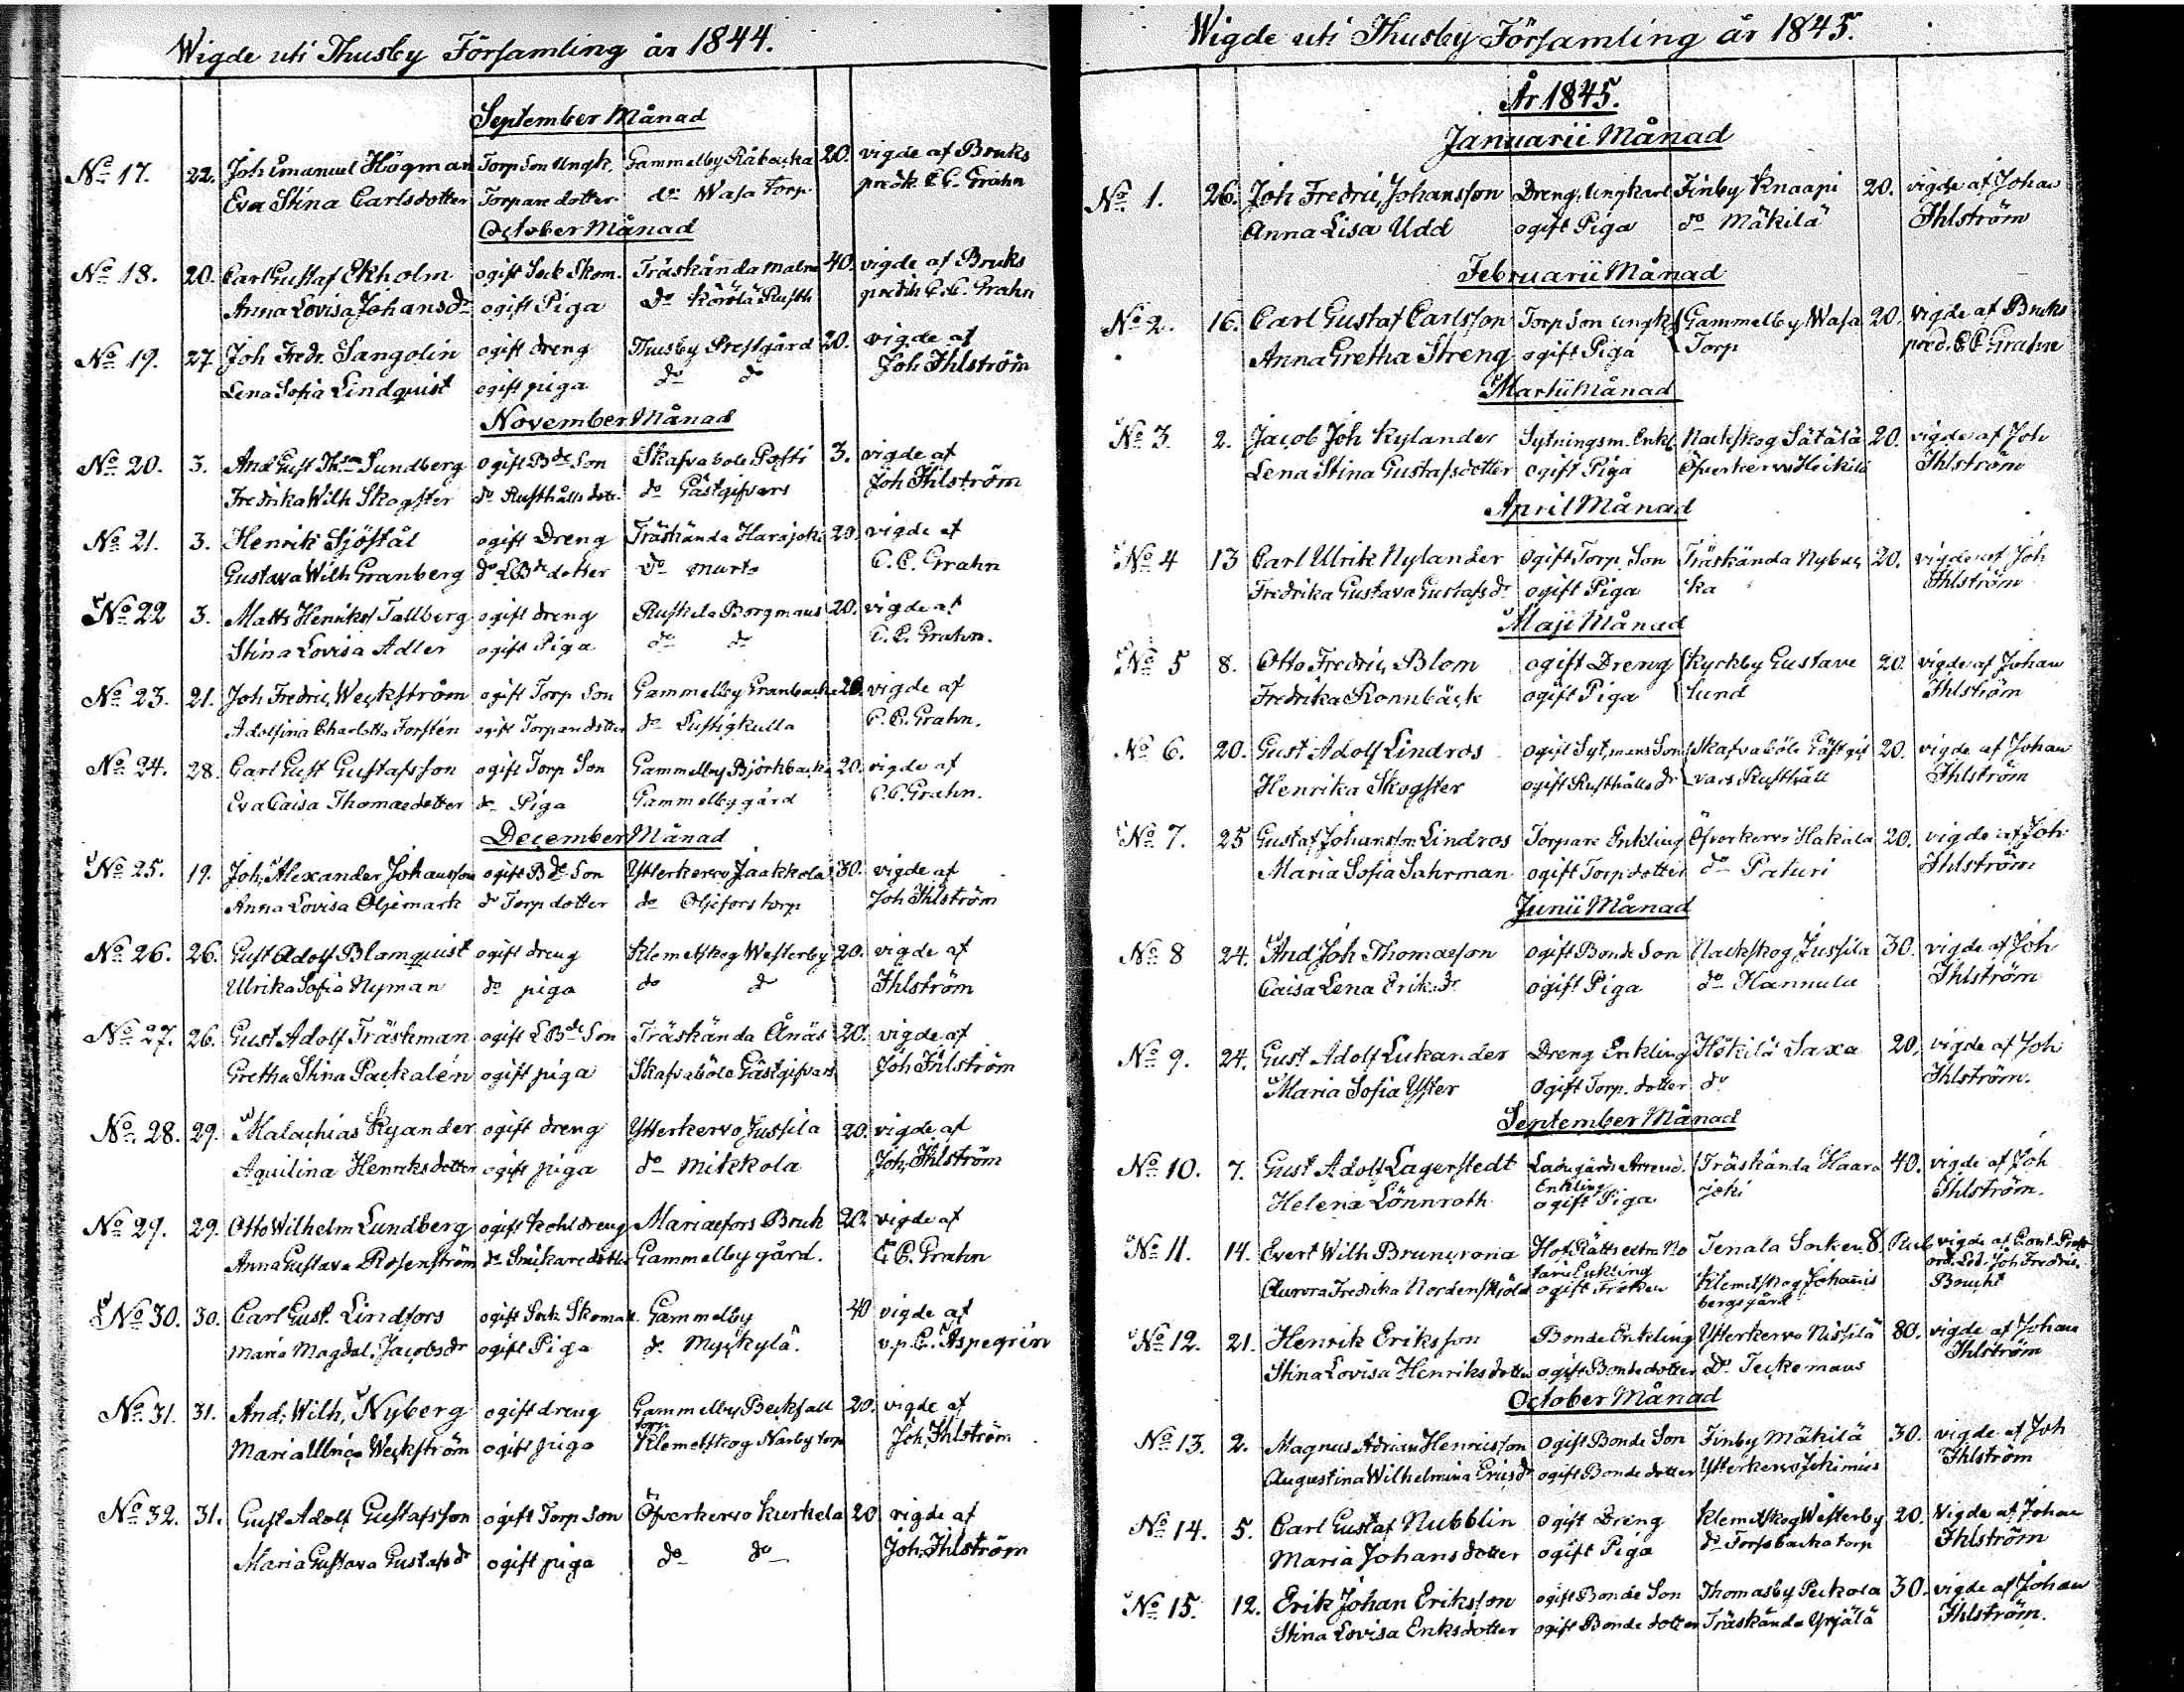 Wigde uti Thusby Församling år 1844.
September Månad
No 17. 22. Joh Emanuel Högman Torp Son Ungk. Gammelby Råbacka 20. vigde af Bruks
Eva Stina Carlsdotter Torpare dotter do Wasa Torp predik. C.C. Grahn
October Månad
No 18. 20. Carl Gustaf Ekholm ogift Sock Skom. Träskända malm 40. vigde af Bruks
Anna Lovisa Johansdr ogift Piga do Rusth predik C.C. Grahn
No 19. 27 Joh Fredr. Sangolin ogift dreng Thusby Prestgård 20. vigde af
Lena Sofia Lindquist ogift piga do do Joh Ihlström
November Månad
No 20. 3. And Gust Sundberg ogift Bde Son Skafvaböle 3. vigde af
Fredrika Wilh Skogster do Rusthålls dott. do Gästgifvars Joh Ihlström
No 21. 3. Henrik Sjöstål ogift Dreng Träskända Harajoki 20. vigde af
Gustava Wilh Granberg do LBde dotter do C.C. Grahn
No 22 3. Matts Henrikss Tallberg ogift dreng Ruskela Borgmans 20. vigde af
Stina Lovisa Adler ogift Piga do do C.C. Grahn.
No 23. 21. Joh Fredric Weckström ogift Torp Son Gammelby Granbacka 20. vigde af
Adolfina Charlotta Forstén ogift Torparedotter do Lustigkulla C.C. Grahn.
No 24. 28. Carl Gust Gustafsson ogift Torp Son Gammelby Björkbacka 20. vigde af
Eva Caisa Thomaedotter do Piga Gammelby gård C.C. Grahn.
December Månad
No 25. 19. Joh. Alexander Johansson ogift Bde Son Ytterkervo Jaakkola 30. vigde af
Anna Lovisa Oljemark do Torp dotter do Oljefors torp Joh Ihlström
No 26. 26. Gust Adolf Blomquist ogift dreng Klemetskog Westerby 20. vigde af
Ulrika Sofia Nyman do piga do do Ihlström
No 27. 26. Gust Adolf Träskman ogift LBde Son Träskända Ånäs 20. vigde af
Gretha Stina Packalén ogift piga Skafvaböle Gästgifvars Joh Ihlström
No 28. 29. Malachias Kyander ogift dreng Ytterkervo Jussila 20. vigde af
Aquilina Henriksdotter ogift piga do Mikkola Joh, Ihlström
No 29. 29. Otto Wilhelm Lundberg ogift kohldreng Mariaefors Bruk 20. vigde af
Anna Gustava Rosenström do Snikaredotter Gammelby gård. C.C. Grahn
No 30. 30. Carl Gust. Lindfors ogift Sock Skomak. Gammelby 40 vigde af
Maria Magdal. Jacobsdr ogift Piga do Myckylä. v.p. C. Aspegrén
No 31. 31. And. Wilh, Nyberg ogift dreng Gammelby Beckfall 20. vigde af
torp
Maria Ulrica Weckström ogift piga Klemetskog Narby torp Joh, Ihlström
No 32. 31. Gust Adolf Gustafsson ogift Torp Son Öfverkervo Kurkela 20 vigde af
Maria Gustava Gustafsdr ogift piga do do Joh, Ihlström
Wigde uti Thusby Församling år 1845.
År 1845.
Januarii Månad
No 1. 26. Joh Fredric, Johansson Dreng. Ungkarl Finby Knaapi 20. vigde af Johan
Anna Lisa Udd ogift Piga do Mäkilä Ihlström
Februarii Månad
No 2. 16. Carl Gustaf Carlsson Torp Son Ungk Gammelby Wasa 20. vigde af Bruks
Anna Gretha Streng ogift Piga Torp pred. C C Grahn
Martii Månad
No 3. 2. Jacob Joh Kylander Sytningsm. Enkl. Nackskog Sätälä 20. vigde af Joh
Lena Stina Gustafsdotter ogift Piga Öfverkervo Heikilä Ihlström
April Månad
No 4 13 Carl Ulrik Nylander Ogift Torp. Son Träskända Nybac 20. vigde af Joh
Fredrika Gustava Gustafsdr ogift Piga ka Ihlström
Maji Månad
No 5 8. Otto Fredric, Blom ogift Dreng Kyckby Gustave 20 vigde af Johan
Fredrika Rönnbäck ogift Piga lund Ihlström
No 6. 20. Gust Adolf Lindros ogift Syt.mans Son Skafvaböle Gästgif 20. vigde af Johan
Henrika Skogster ogift Rusthålls dr vars Rusthåll Ihlström
No 7. 25 Gustaf Johansson Lindros Torpare Enkling Öfverkervo Hakala 20. vigde af Joh
Maria Sofia Sahrman ogift Torp dotter do Paturi Ihlström
Junii Månad
No 8 24. And Joh Thomaeson ogift Bonde Son Nackskog Jussila 30. vigde af Joh
Caisa Lena Eriksdr ogift Piga do Hannula Ihlström
No 9. 24. Gust Adolf Lukander Dreng Enkling Hökilä Saxa 20, vigde af Joh
Maria Sofia Yster Ogift Torp. dotter do Ihlström.
September Månad
No 10. 7. Gust Adolf Lagerstedt Ladugårds Arrend. Träskända Haara 40. vigde af Joh
Enkling
Helena Lönnroth ogift Piga joki Ihlström.
No 11. 14. Evert Wilh Bruncrona Hof Rätts extra No Tenala Socken 8 Rub vigde af Cont. Prost
tarie Enkling Joh Fredric.
Aurora Fredrika Nordenskjöld ogift Fröken Klemetskog Johannis Boucht
bergs gård
No 12. 21. Henrik Eriksson Bonde Enkling Ytterkervo Nissilä 80. vigde af Johan
Stina Lovisa Henriksdotter ogift Bondedotter do Teckemans Ihlström
October Månad
No 13. 2. Magnus Adrian Henricsson ogift Bonde Son Finby Mäkilä 30. vigde af Joh
Augustina Wilhelmina Ericsdr ogift Bonde dotter Ytterkervo Jokimies Ihlström
No 14. 5. Carl Gustaf Nubblin ogift Dreng Klemetskog Westerby 20. Vigde af Johan
Maria Johansdotter ogift Piga do Forssbacka torp Ihlström
No 15. 12. Erik Johan Eriksson ogift Bonde Son Thomasby Peckola 30. vigde af Johan
Stina Lovisa Eriksdotter ogift Bonde dotter Träskända Yrjälä Ihlström.